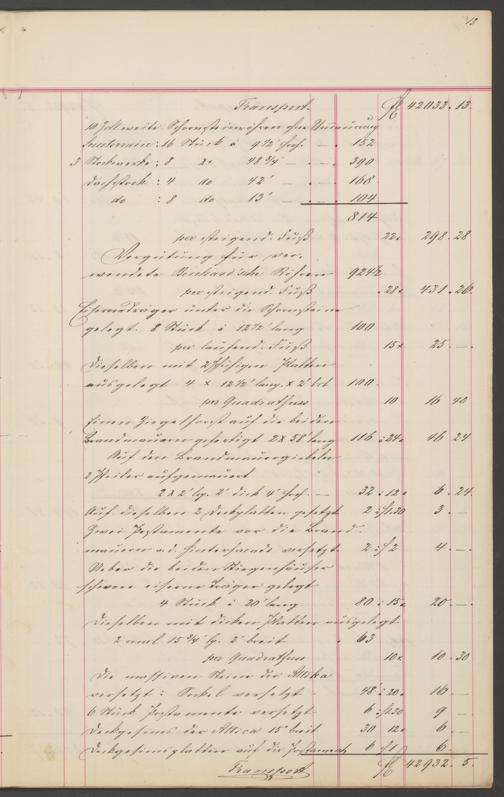 13
Transport. fl 42033. 13.
10 Zoll weite Schornsteinröhren ohne Ummauerung
Souterrain: 16 Stück à 9 1/2' hoch. — 152
3 Stockwerke: 8 do 48 3/4 — 390
Dachstock: 4 do 42' — 168
do : 8 do 13' — 104
814
per steigend. Fuß 22x 298. 28
Vergütung für ver-
wendete Röhren 924 1/2
per steigend. Fuß 28x 431. 26.
Eisenträger unter die Schornsteine
gelegt. 8 Stück à 12 1/2' lang 100
per laufend. Fuß 15x 25. —
Dieselben mit Platten
ausgelegt 4 x 12 1/2' lang. x 2' brt 100.
per Quadratfuss 10 16 40
Einen Ziegelforst auf die beiden
Brandmauern gefertigt 2 x 58' lang 116 : 24x 46 24
Auf den Brandmauergiebeln
2 Pfeiler aufgemauert
2 x 2' lg. 2' dick 4' hoch. — 32 : 12x 6. 24.
Auf dieselben 2 Deckplatten gesetzt 2 : f1.30 3. —
Zwei Postamente vor die Brand-
mauern a.d. Hinterfacade versetzt 2 : f 2 4. —
Ueber die beiden Stiegenhäuser
schwere eiserne Träger gelegt
4 Stück à 20' lang 80 : 15x 20. —
Dieselben mit dicken Platten ausgelegt
2 mal 15 3/4' lg. 2' breit 63
per Quadratfuss 10x 10. 30
Die massiven Steine der Attika
versetzt: Sockel versetzt 48' : 20x 16 —
6 Stück Postamente versetzt 6 : f1.30 9 —
Deckgesims der Attica 15' breit 30 12x 6. —
Deckgesimsplatten auf die Postamente 6 : f 1 6. —
Transport fl 42932. 5.